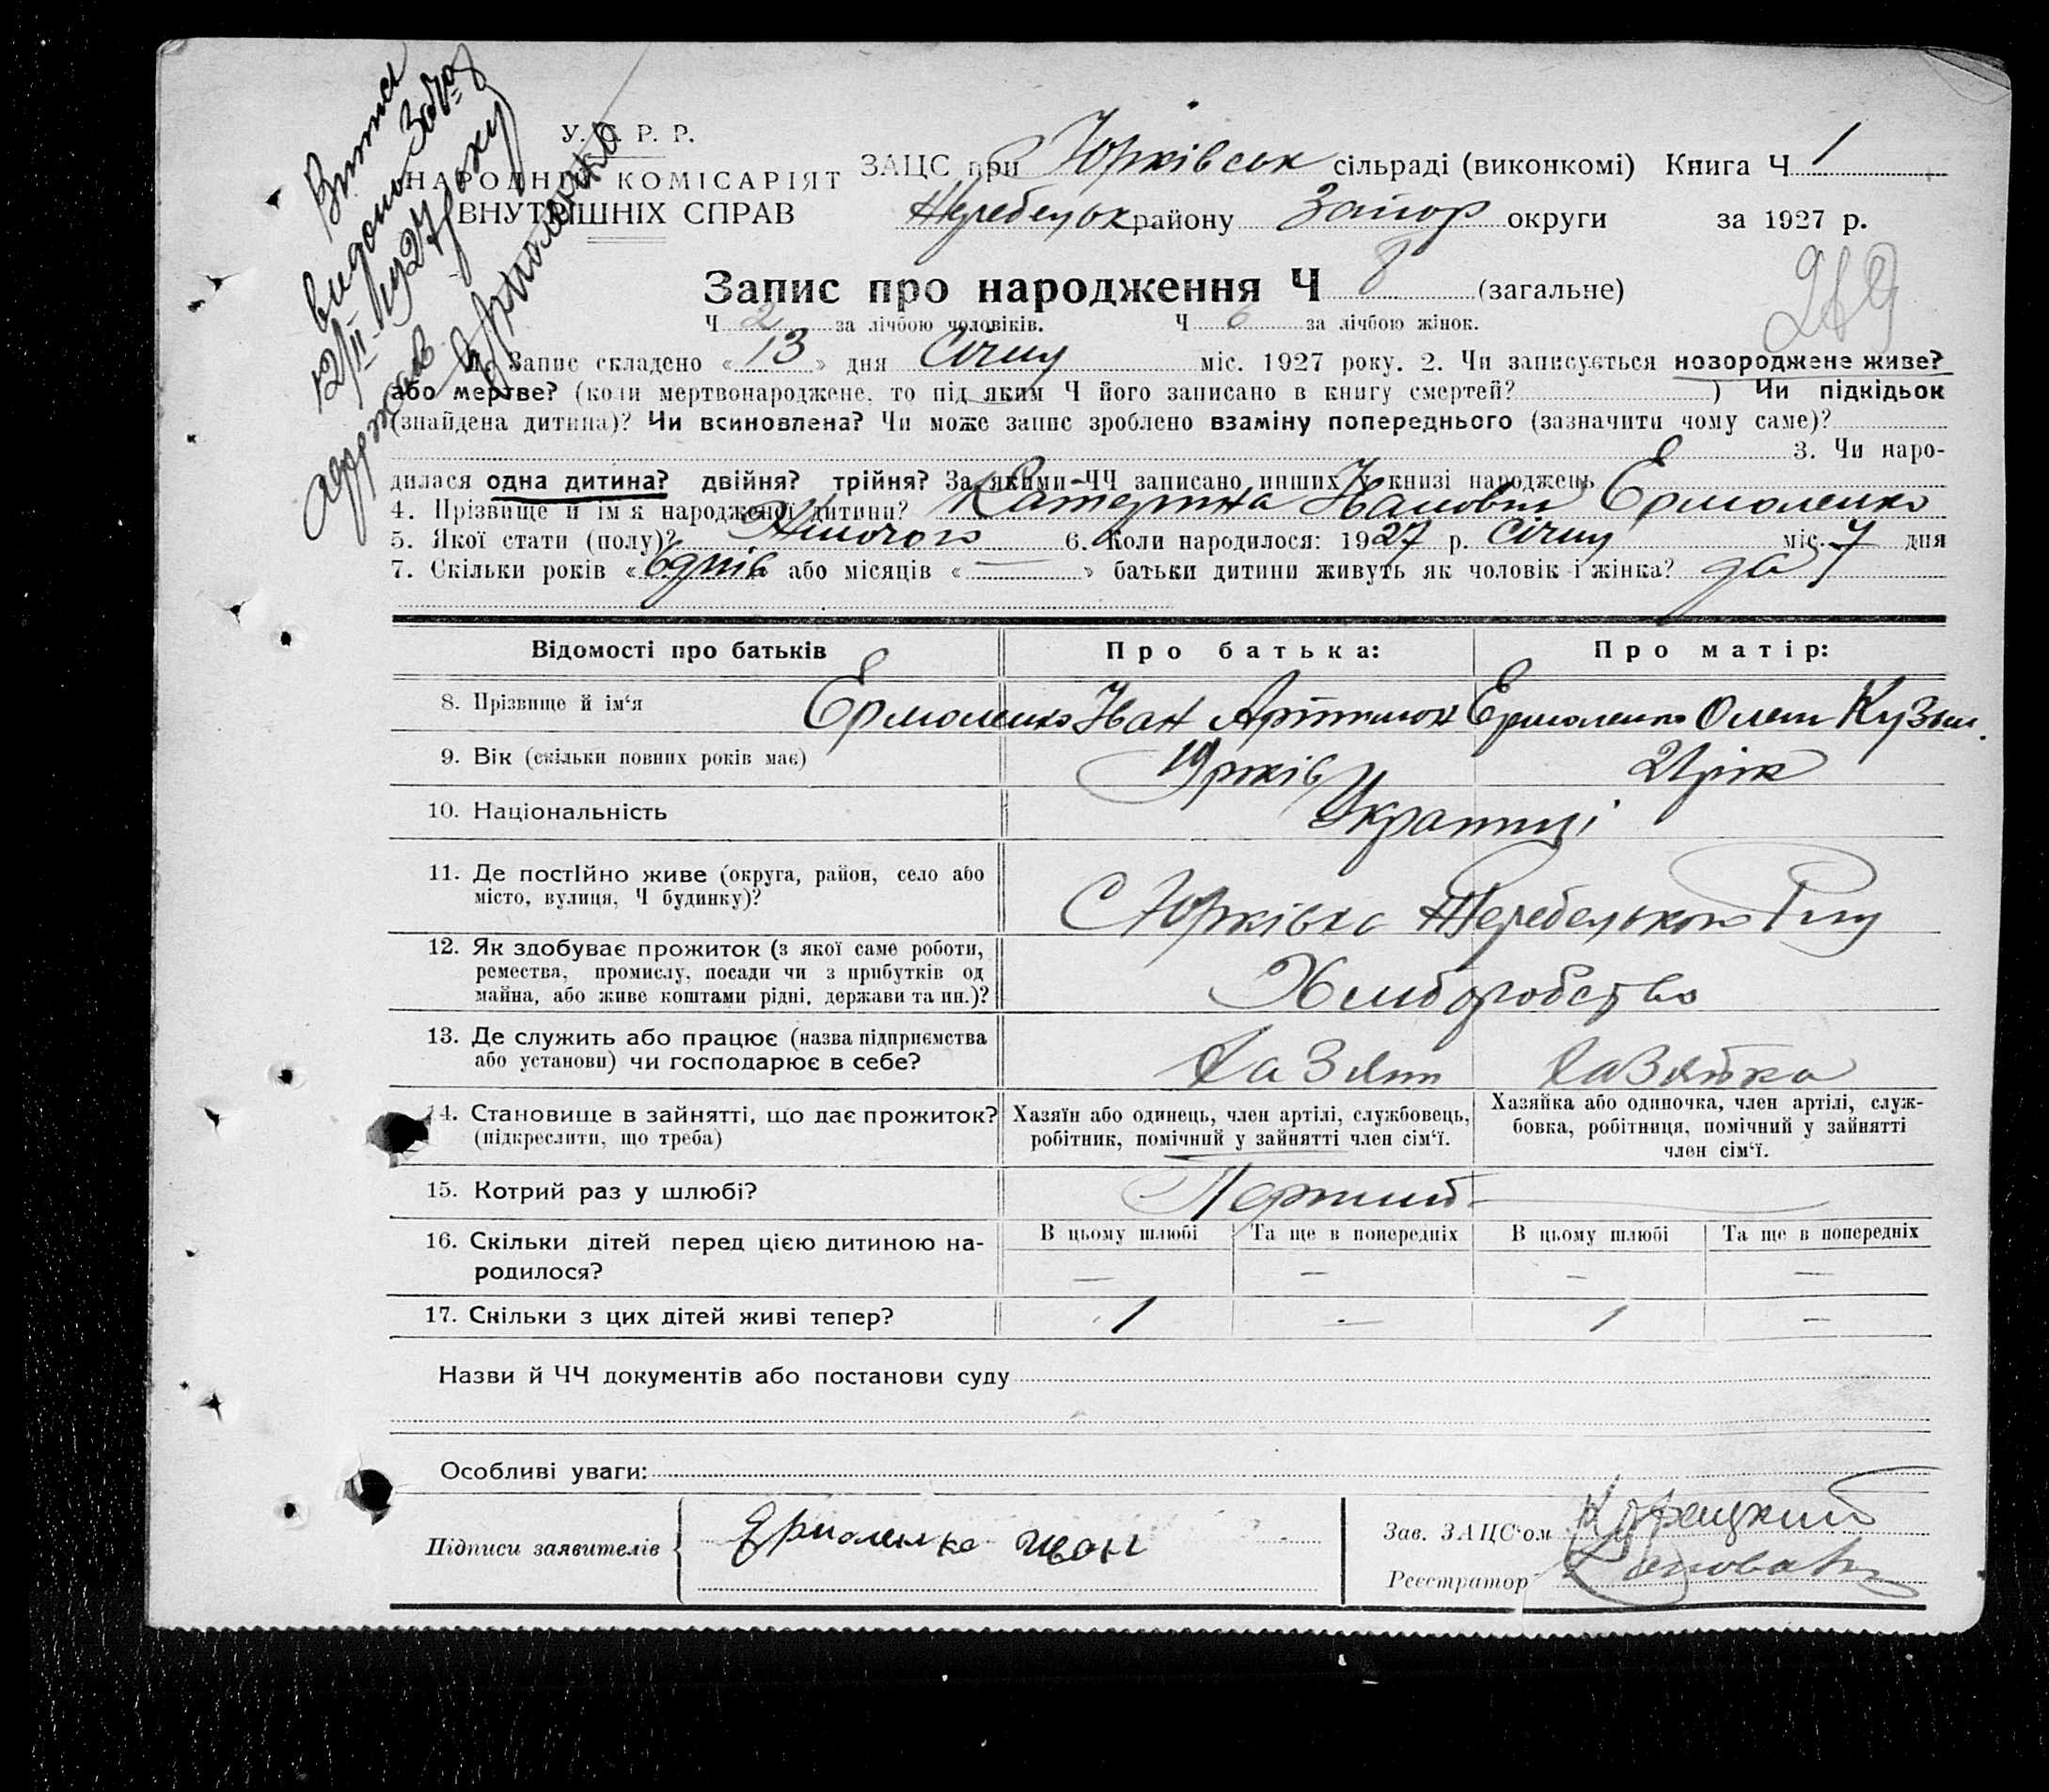 Витяг
видано За № 8
12/II 1927 року
адержав Ермоленко
У. С. Р. Р.
НАРОДНІЙ КОМІСАРІЯТ
ВНУТРІШНІХ СПРАВ
ЗАЦС при Юрківськ сільраді (виконкомі) Книга Ч 1
Жеребецьк району Запор округи за 1927 р.
Запис про народження Ч 8 (загальне)
Ч 2 за лічбою чоловіків. Ч 6 за лічбою жінок.
1. Запис складено «13» дня Січня міс. 1927 року. 2. Чи записується новороджене живе?
або мертве? (коли мертвонароджене, то під яким Ч його записано в книгу смертей? ) Чи підкідьок
(знайдена дитина)? Чи всиновлена? Чи може запис зроблено взаміну попереднього (зазначити чому саме)?
3. Чи наро-
дилася одна дитина? двійня? трійня? За якими ЧЧ записано инших у книзі народжень
4. Прізвище й ім'я народженої дитини? Катерина Ивановна Ермоленко
5. Якої статі (полу)? Жіночого 6. Коли народилося: 1927 р. січня міс. 7 дня
7. Скільки років «6 днів або місяців « — » батьки дитини живуть як чоловік і жінка? да
Відомості про батьків Про батька: Про матір:
8. Прізвище й ім'я Ермоленко Іван Артемон Ермоленко Олен Кузьм.
9. Вік (скільки повних років має) 19 років 21 рік
10. Національність Украинці
11. Де постійно живе (округа, район, село або
місто, вулиця, Ч будинку)? С Юрківка Жеребецького Р-ну
12. Як здобуває прожиток (з якої саме роботи,
ремества, промислу, посади чи з прибутків од
майна, або живе коштами рідні, держави та ин.)? Хлиборобство
13. Де служить або працює (назва підприємства
або установи) чи господарює в себе? Хазяин Хазяйка
14. Становище в зайнятті, що дає прожиток?
(підкреслити, що треба)
Хазяїн або одинець, член артілі, службовець,
робітник, помічний у зайнятті член сім'ї.
Хазяйка або одиночка, член артілі, служ-
бовка, робітниця, помічний у зайнятті
член сім'ї.
15. Котрий раз у шлюбі? Перший
16. Скільки дітей перед цією дитиною на-
родилося?
В цьому шлюбі Та ще в попередніх В цьому шлюбі Та ще в попередніх
— — — —
17. Скільки з цих дітей живі тепер? 1 — 1 —
Назви й ЧЧ документів або постанови суду
Особливі уваги:
Підписи заявителів Ермоленко Иван
Зав. ЗАЦС'ом
Реєстратор